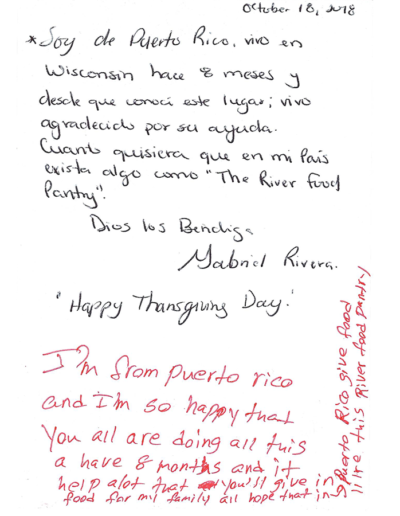 October 18, 2018
*Soy de Puerto Rico, vivo en
Wisconsin hace 8 meses y
desde que conocí este lugar; vivo
agradecido por su ayuda.
Cuanto quisiera que en mi País
exista algo como "The River Food
Pantry".
Dios los Bendiga
Gabriel Rivera.
'Happy Thansgiving Day.'
I'm from puerto rico
and I'm so happy that
You all are doing all this
a have 8 months and it
help alot that you'll give in
food for mil family all hope that in
puerto Rico give food
like this River food pantry